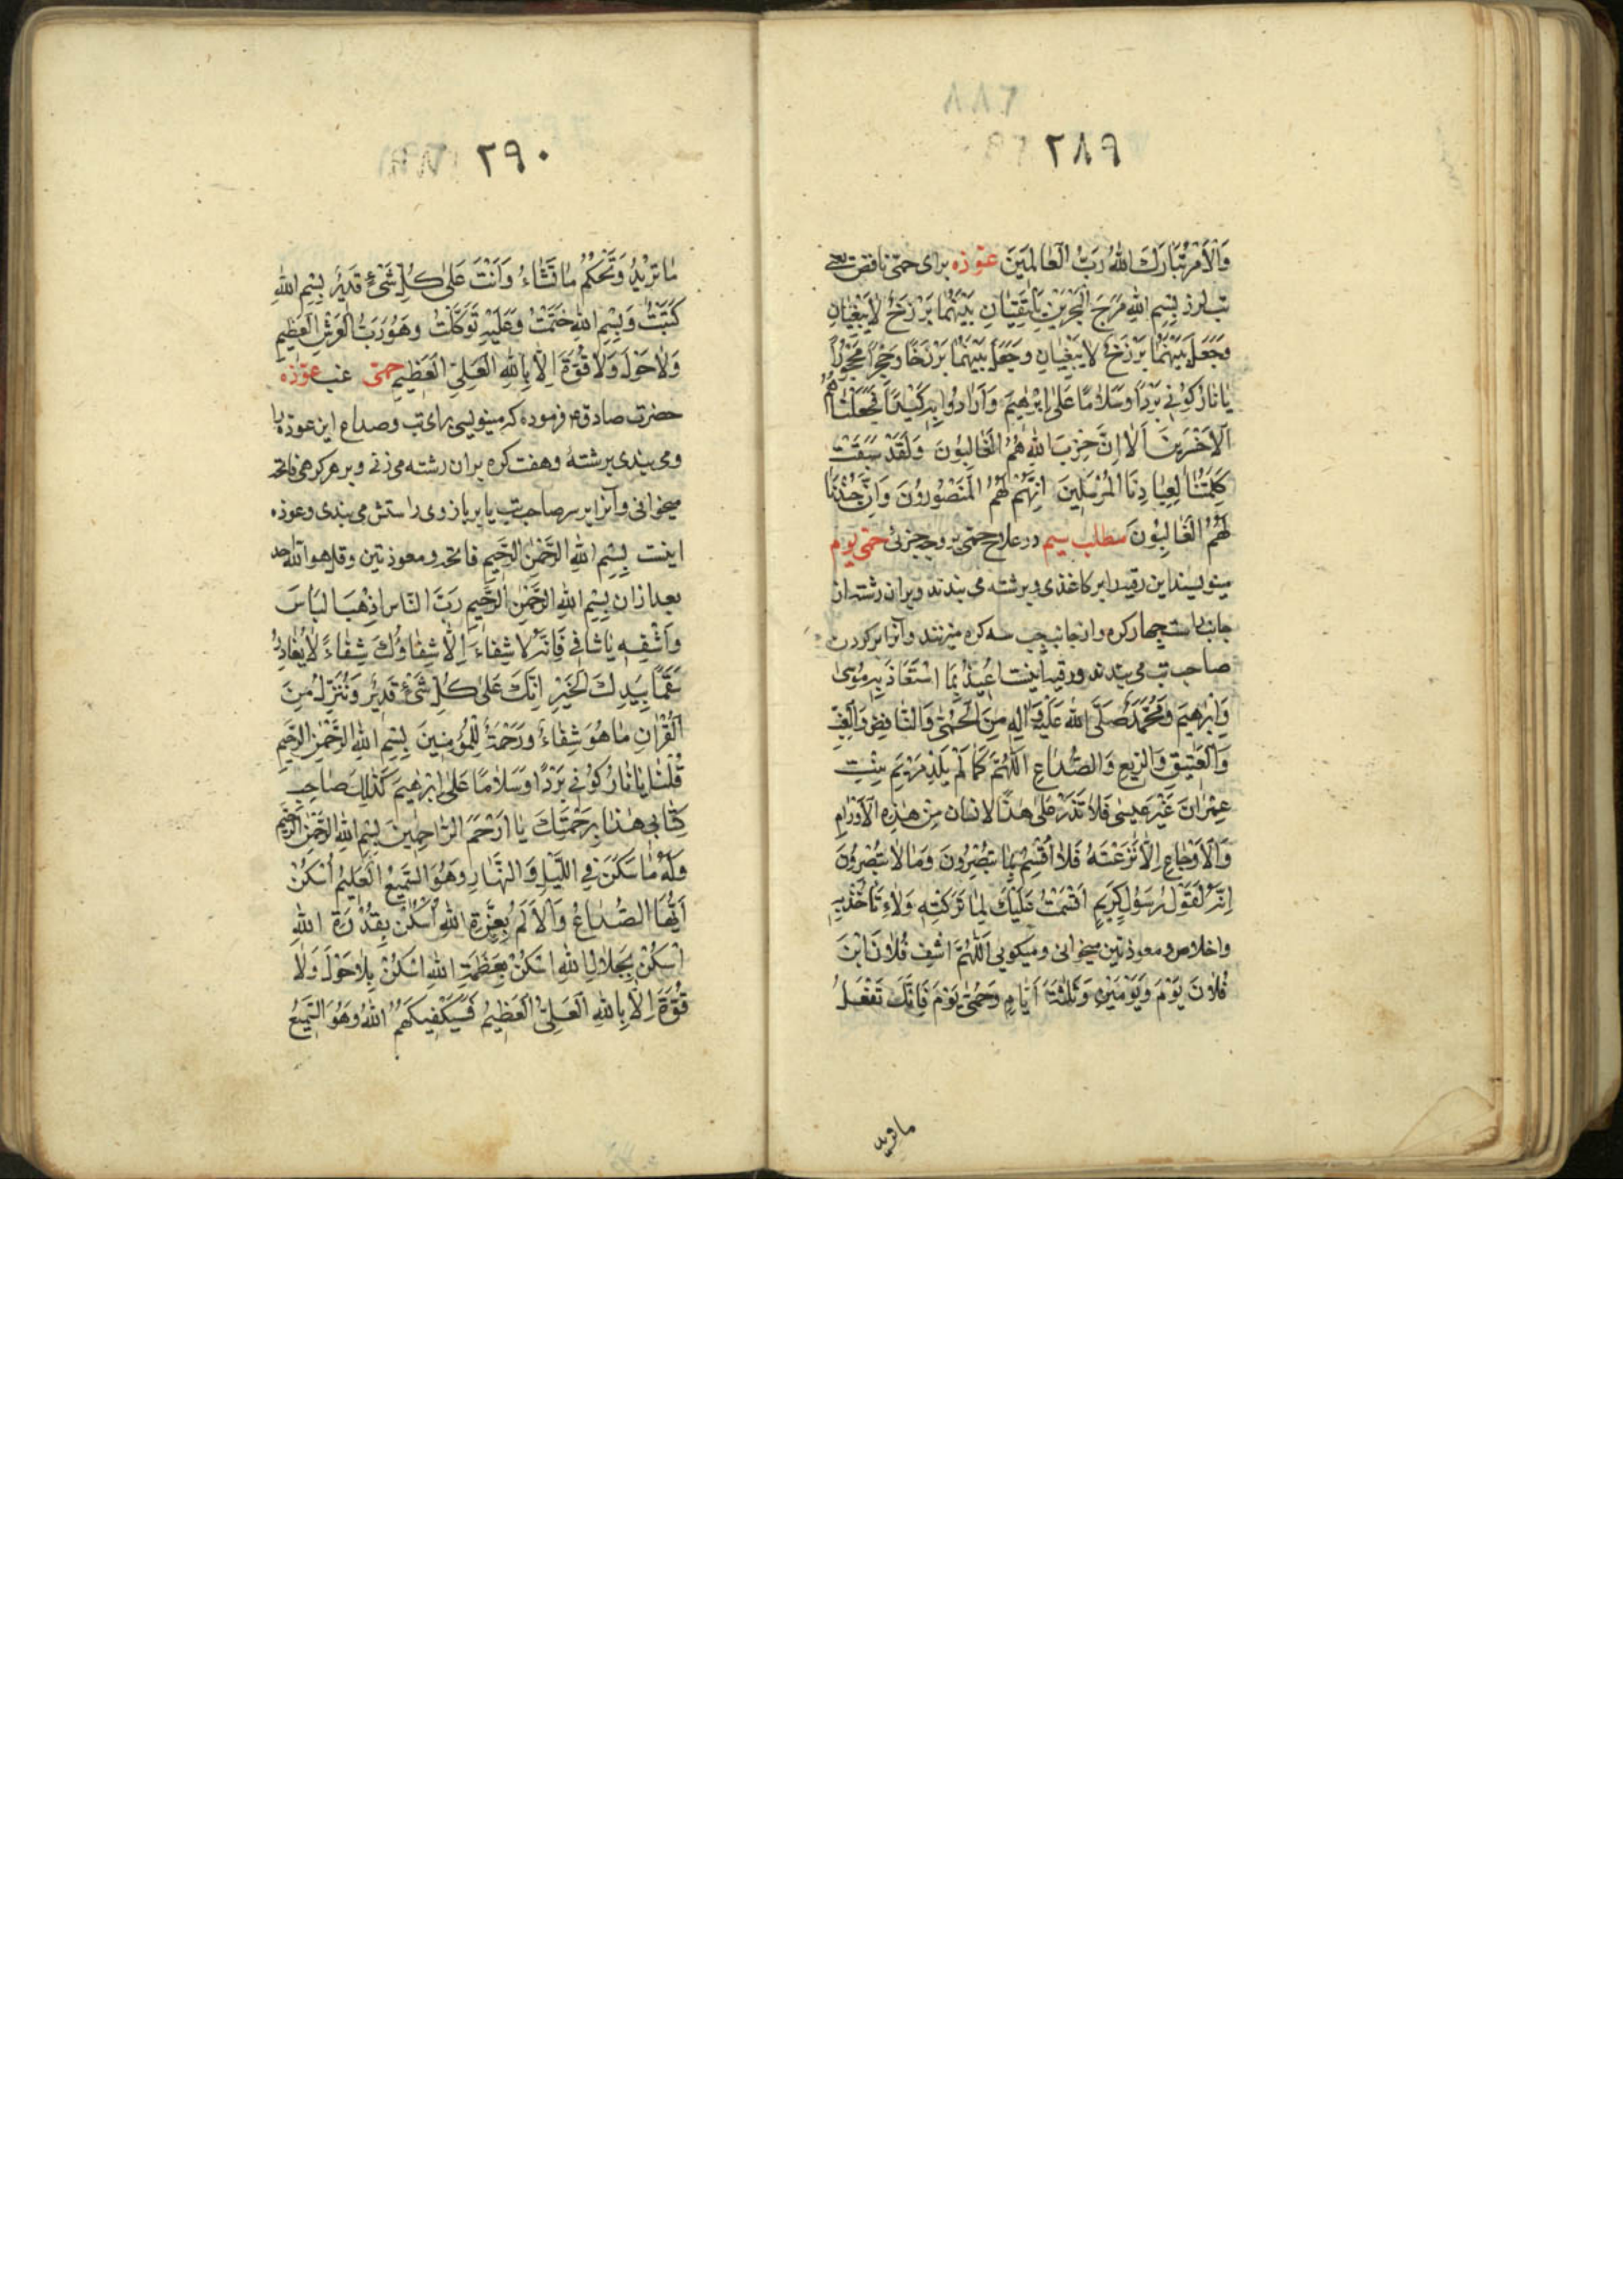 ٢٨٩
وَالْاَمْرُ تَبَارَكَ اللّٰهُ رَبُّ الْعٰالَمِينَ عوذه برای حمّی نافض یعنی
تب لرز بِسْمِ اللّٰهِ مَرَجَ الْبَحْرَيْنِ يَلْتَقِيٰانِ بَيْنَهُمٰا بَرْزَخٌ لاٰيَبْغِيٰانِ
وَجَعَلَ بَيْنَهُمٰا بَرْزَخٌ لاٰ يَبْغِيٰانِ وَجَعَلَ بَيْنَهُمٰا بَرْزَخًا وَحِجْرًا مَحْجُورًا
يٰا نٰارُ كُونِي بَرْدًا وَسَلاٰمًا عَلىٰ اِبْرٰهِيمَ وَاَرٰادُوا بِهِ كَيْدًا فَجَعَلْنٰاهُمُ
الْاَخْسَرِينَ اَلاٰ اِنَّ حِزْبَ اللّٰهِ هُمُ الْغٰالِبُونَ وَلَقَدْ سَبَقَتْ
كَلِمَتُنٰا لِعِبٰادِنَا الْمُرْسَلِينَ اِنَّهُمْ لَهُمُ الْمَنْصُورُونَ وَاِنَّ جُنْدَنٰا
لَهُمُ الْغٰالِبُونَ مطلب سیم در علاج حمّی بر وجه جزئی حمّی یوم
مینویسند این رقیه را بر کاغذی و بر رشته می بندند و بران رشته از
جانب راست چهار کره و از جانب چپ سه کره میزنند و آنرا بر کردن
صاحب تب می بندند و رقیه اینست اُعِيذُ بِمَا اسْتَعٰاذَ بِهِ مُوسىٰ
وَاِبْرٰهِيمُ وَمُحَمَّدٌ صَلَّى اللّٰهُ عَلَيْهِ وَاٰلِهِ مِنَ الْحُمّىٰ وَالنّٰافِضِ وَالْغِبِّ
وَالْعَتِيقِ وَالرِّبْعِ وَالصُّدٰاعِ اَللّٰهُمَّ كَمٰا لَمْ يَلِدْ مَرْيَمُ بِنْتُ
عِمْرٰانَ غَيْرَ عِيسىٰ فَلاٰ تَذَرْ عَلىٰ هٰذَا الْاِنْسٰانِ مِنْ هٰذِهِ الْاَوْرٰامِ
وَالْاَوْجٰاعِ اِلاّٰ نَزَعْتَهُ فَلاٰ اُقْسِمُ بِمٰا تُبْصِرُونَ وَمٰا لاٰ تُبْصِرُونَ
اِنَّهُ لَقَوْلُ رَسُولٍ كَرِيمٍ اَقْسَمْتُ عَلَيْكَ لِمٰا تَرَكْتِهِ وَلاٰ تَأْخُذِيهِ
واخلاص و معوذتین میخوانی و میکویی اَللّٰهُمَّ اشْفِ فُلاٰنَ ابْنَ
فُلاٰنَ يَوْمَ وَيَوْمَيْنِ وَثَلٰثَةَ اَيّٰامٍ وَحُمّىٰ يَوْمَ فَاِنَّكَ تَفْعَلُ
ما ترید
٢٩٠
مٰا تُرِيْدُ وَتَحْكُمُ مٰا تَشٰاءُ وَاَنْتَ عَلىٰ كُلِّ شَيْءٍ قَدِيرٌ بِسْمِ اللّٰهِ
كَتَبْتُ وَبِسْمِ اللّٰهِ خَتَمْتُ وَعَلَيْهِ تَوَكَّلْتُ وَهُوَ رَبُّ الْعَرْشِ الْعَظِيمِ
وَلاٰ حَوْلَ وَلاٰ قُوَّةَ اِلاّٰ بِاللّٰهِ الْعَلِيِّ الْعَظِيمِ حمّی غب عوذه
حضرت صادق ع فرموده که مینویسی برای تب و صداع این عوذه را
ومی بندی برشته و هفت کره بران رشته می زنی و بر هر کرهی فاتحه
میخوانی و آنرا بر سر صاحب تب یا بر بازوی راستش می بندی و عوذه
اینست بِسْمِ اللّٰهِ الرَّحْمٰنِ الرَّحِيمِ فاتحه و معوذتین و قل هو الله احد
بعد ازان بِسْمِ اللّٰهِ الرَّحْمٰنِ الرَّحِيمِ رَبَّ النّٰاسِ اذْهَبِ الْبَأْسَ
وَاشْفِهِ يٰا شٰافِي فَاِنَّهُ لاٰ شِفٰاءَ اِلاّٰ شِفٰاؤُكَ شِفٰاءً لاٰ يُغٰادِرُ
سَقَمًا بِيَدِكَ الْخَيْرُ اِنَّكَ عَلىٰ كُلِّ شَيْءٍ قَدِيرٌ وَنُنَزِّلُ مِنَ
الْقُرْاٰنِ مٰا هُوَ شِفٰاءٌ وَرَحْمَةٌ لِلْمُؤْمِنِينَ بِسْمِ اللّٰهِ الرَّحْمٰنِ الرَّحِيمِ
قُلْنٰا يٰا نٰارُ كُونِي بَرْدًا وَسَلاٰمًا عَلىٰ اِبْرٰهِيمَ كَذٰلِكَ صٰاحِبُ
كِتٰابِي هٰذٰا بِرَحْمَتِكَ يٰا اَرْحَمَ الرّٰاحِمِينَ بِسْمِ اللّٰهِ الرَّحْمٰنِ الرَّحِيمِ
وَلَهُ مٰا سَكَنَ فِي اللَّيْلِ وَالنَّهٰارِ وَهُوَ السَّمِيعُ الْعَلِيمُ اُسْكُنْ
اَيُّهَا الصُّدٰاعُ وَالْاَلَمُ بِعِزَّةِ اللّٰهِ اُسْكُنْ بِقُدْرَةِ اللّٰهِ
اسْكُنْ بِجَلاٰلِ اللّٰهِ اسْكُنْ بِعَظَمَةِ اللّٰهِ اسْكُنْ بِلاٰ حَوْلَ وَلاٰ
قُوَّةَ اِلاّٰ بِاللّٰهِ الْعَلِيِّ الْعَظِيمُ فَسَيَكْفِيكَهُمُ اللّٰهُ وَهُوَ السَّمِيعُ